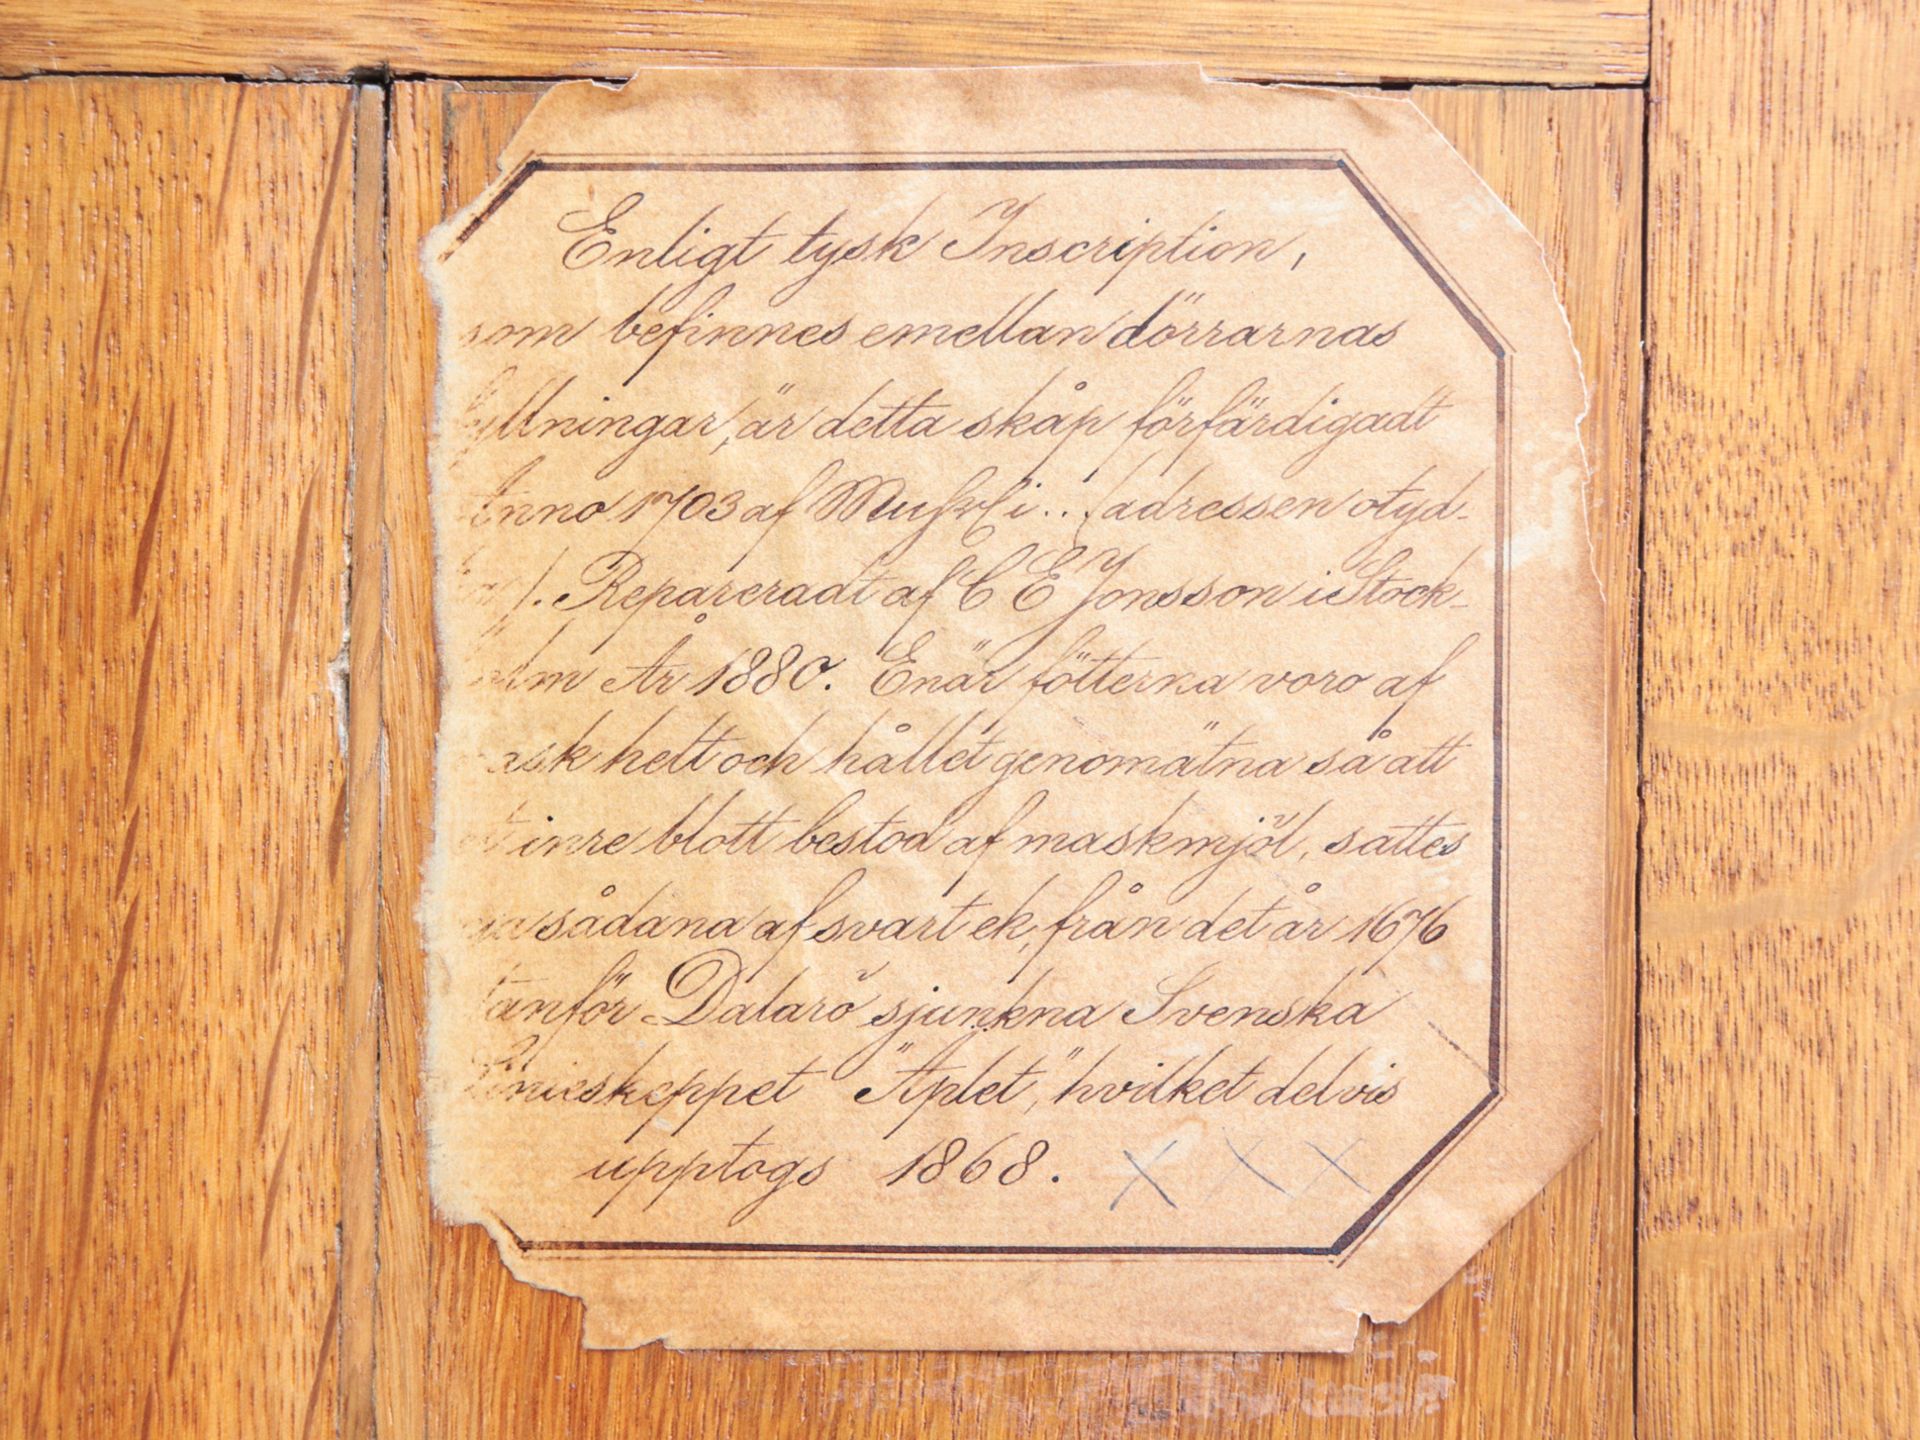 Enligt tysk Inscription,
som befinnes emellan dörrarnas
fyllningar, är detta skåp förfärdigadt
Anno 1703 af i... /adressen otyd-
/. Repareradt af C E Jonsson i Stock-
holm År 1880. Enär fötterna voro af
mask helt och hållet genomätna så att
inre blott bestod af maskmjöl, sattes
sådana af svart ek, från det år 1676
utanför Dalarö sjunkna Svenska
Linieskeppet "Äplet", hvilket delvis
upptogs 1868. X X X